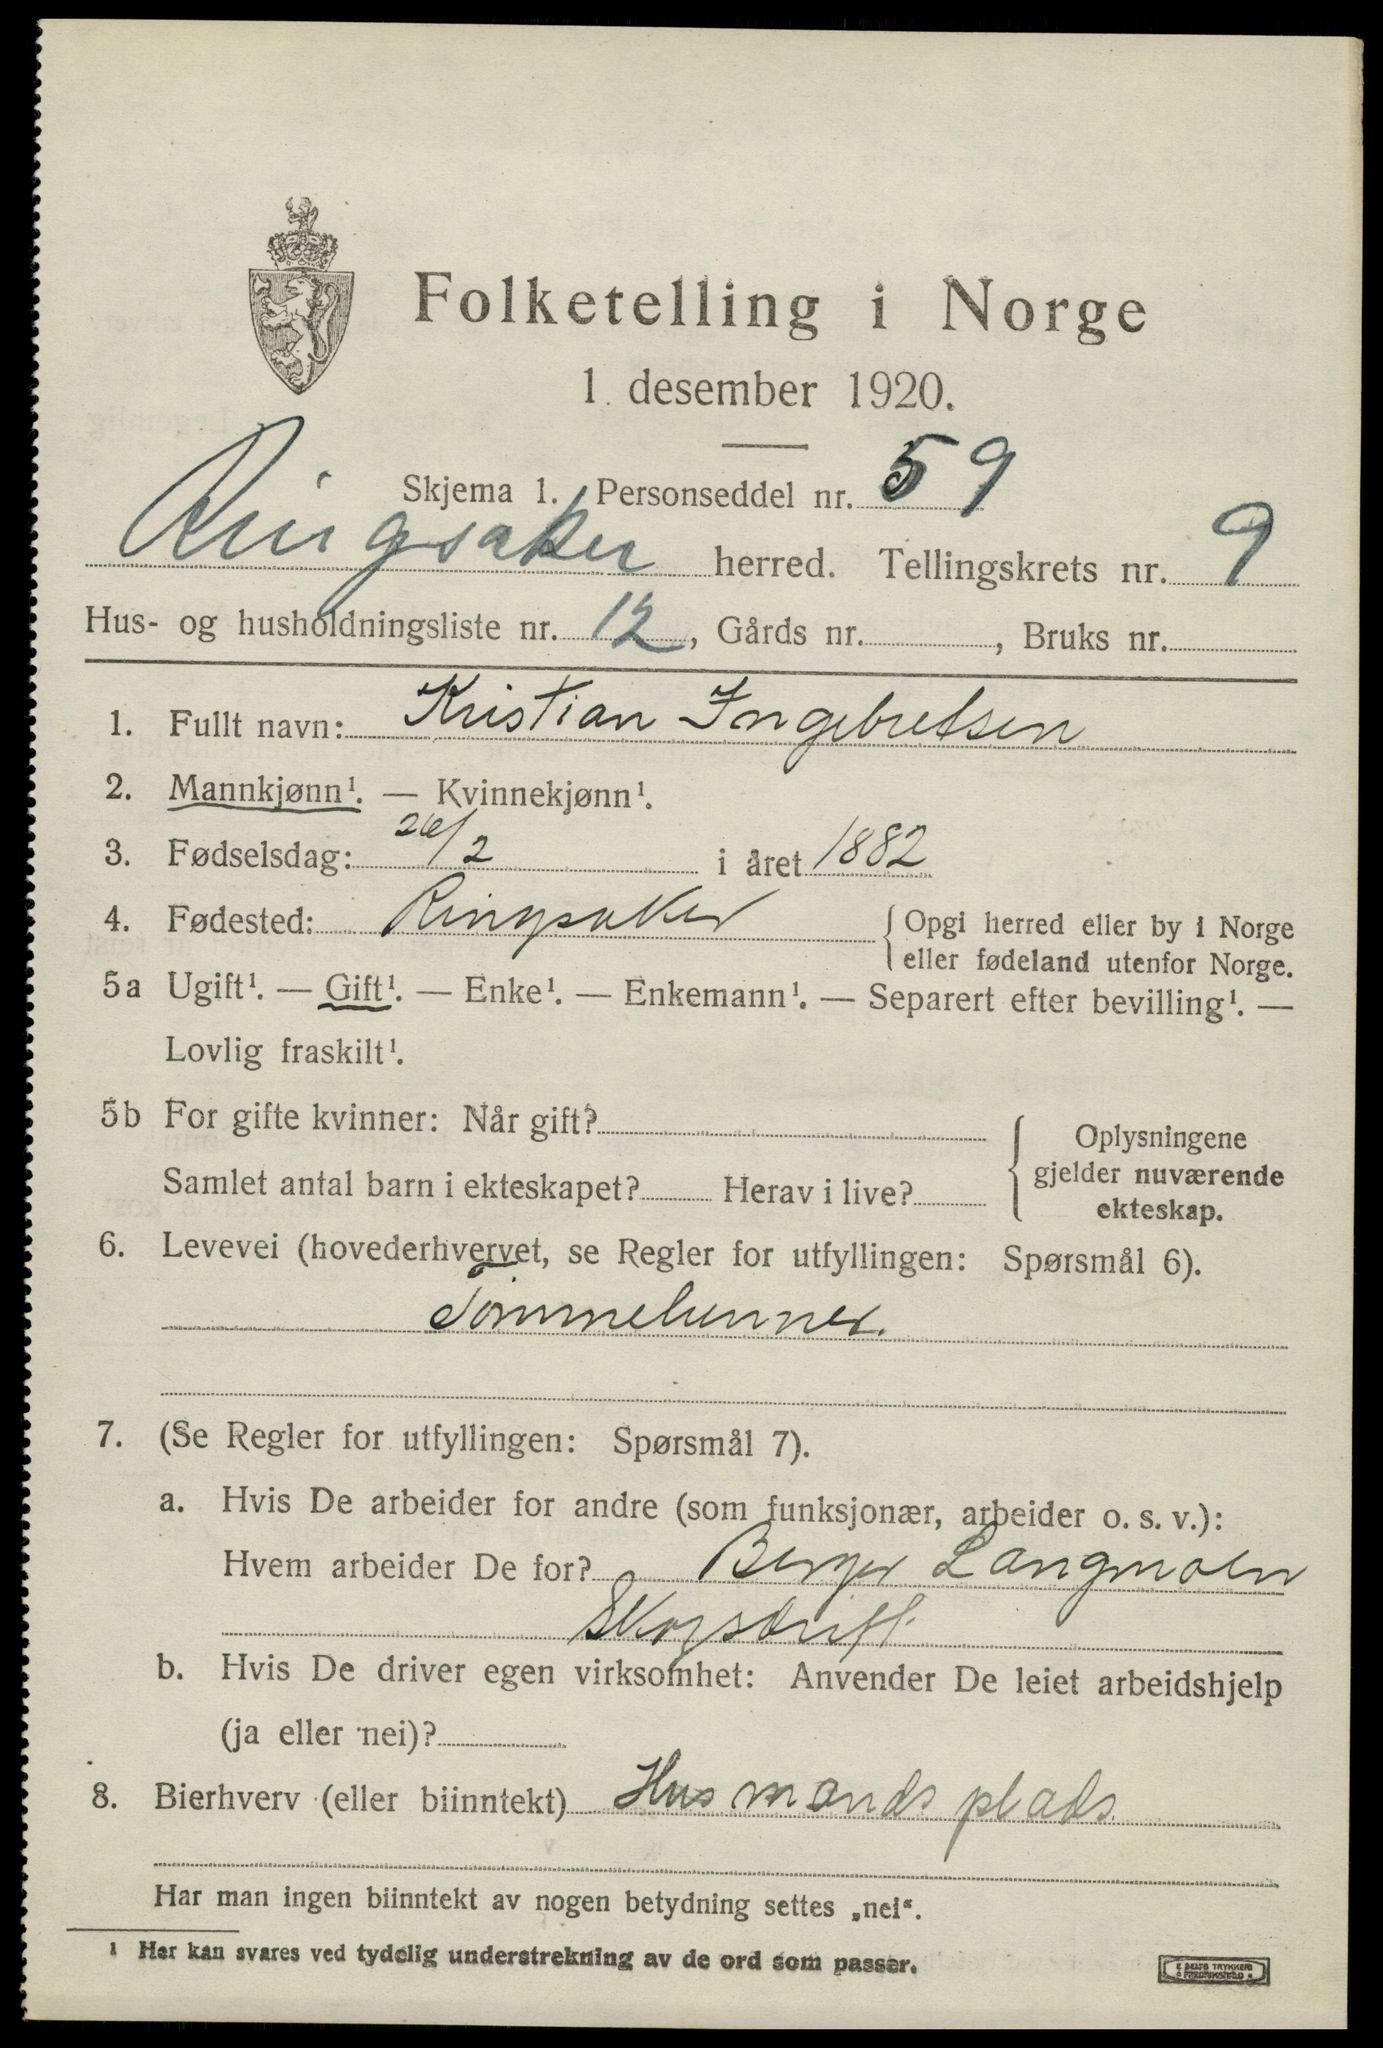 Folketelling i Norge
1. desember 1920.
Skjema 1. Personseddel nr. 59
Ringsaker herred. Tellingskrets nr. 9
Hus- og husholdningsliste nr. 12, Gårds nr. , Bruks nr.
1. Fullt navn: Kristian Ingebretsen
2. Mannkjønn¹. — Kvinnekjønn¹.
3. Fødselsdag: 26/2 i året 1882
4. Fødested: Ringsaker { Opgi herred eller by i Norge
eller fødeland utenfor Norge.
5a Ugift¹. — Gift¹. — Enke¹. — Enkemann¹. — Separert efter bevilling¹. —
Lovlig fraskilt¹.
5b For gifte kvinner: Når gift? { Oplysningene
gjelder nuværende
ekteskap.
Samlet antal barn i ekteskapet? Herav i live?
6. Levevei (hovederhvervet, se Regler for utfyllingen: Spørsmål 6).
7. (Se Regler for utfyllingen: Spørsmål 7).
a. Hvis De arbeider for andre (som funksjonær, arbeider o. s. v.):
Hvem arbeider De for? Berger Langmoen
Skogsdrift
b. Hvis De driver egen virksomhet: Anvender De leiet arbeidshjelp
(ja eller nei)?
8. Bierhverv (eller biinntekt) Husmandsplads
Har man ingen biinntekt av nogen betydning settes „nei“.
¹ Her kan svares ved tydelig understrekning av de ord som passer.